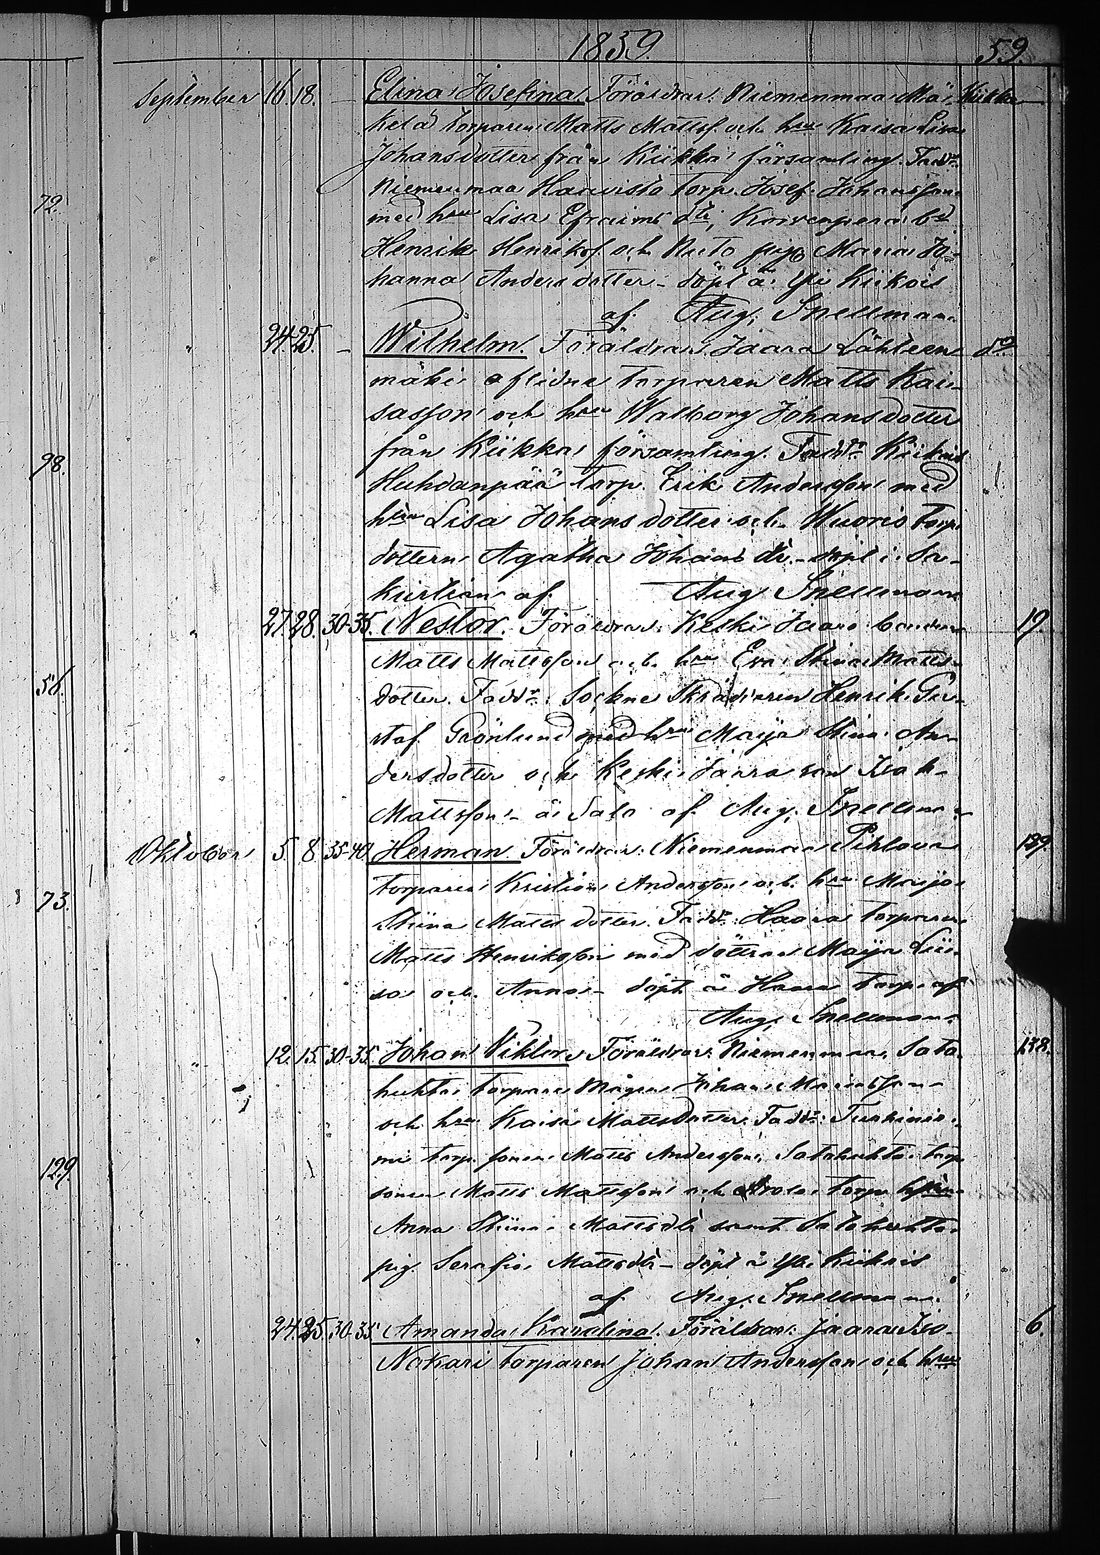 1859. 59.
September 16. 18. Elina Josefina. Föräldrar: Niemenmaa Mä- Kiikka
kelä torparen Matts Mattsf. och hru Kaisa Lisa
Johansdotter från Kiikka församling. Fadd:
Niemenmaa Haavisto torp. Josef Johansson
72.
med hru Lisa Efraims dtr, Korvenperä bd
Henrik Henriksf. och Nuto pig. Maria Jo-
hanna Anders dotter - döpt å Yli Kiikois
af Aug. Snellman.
" 24. 25. Wilhelm. Föräldrar: Jaara Lähteen do
mäki aflidne torparen Matts Kai-
sasson och hru Walborg Johans dotter
från Kiikka församling. Fadd: Kiikois
98.
Huhdanpää torp. Erik Andersson med
hru Lisa Johans dotter och Wuorio torp.
dottern Agatha Johans dtr. - döpt i Sa-
kristian af Aug. Snellman
" 27. 28. 30-35. Nestor. Föräldrar: Keski Jaara bonden 19.
Matts Mattsson och hru Eva Stina Matts-
56.
dotter. Fadd: Sockne Skräddaren Henrik Gus-
taf Grönlund med hru Maija Stina An-
dersdotter och Keski Jaara son Isak
Mattsson - å Sala af Aug. Snellman
Oktober 5. 8. 35-40. Herman. Föräldrar: Niemenmaa Pihlava 139.
torparen Kristian Andersson och hru Maija
73.
Stiina Matts dotter. Fadd: Haara torparen
Matts Henriksson med döttrar Maija Lii-
sa och Anna - döpt å Haara torp af
Aug. Snellman.
" 12. 15. 30-35. Johan Viktor. Föräldrar: Niemenmaa Sata- 138.
huhta torpare Mågen Johan
och hru Kaisa Mattsdotter. Fadd:
129.
mi torp. sonen Matts Andersson, Satahuhta torp
sonen Matts Mattsson och torp.
Anna Stiina Mattsdtr samt Satahuhta
pig. Serafia Mattsdtr - döpt å Yli Kiikois
af Aug. Snellman.
" 24. 25. 30-35. Amanda Karolina. Föräldrar: Jaara Iso- 6.
Nokari torparen Johan Andersson och hru